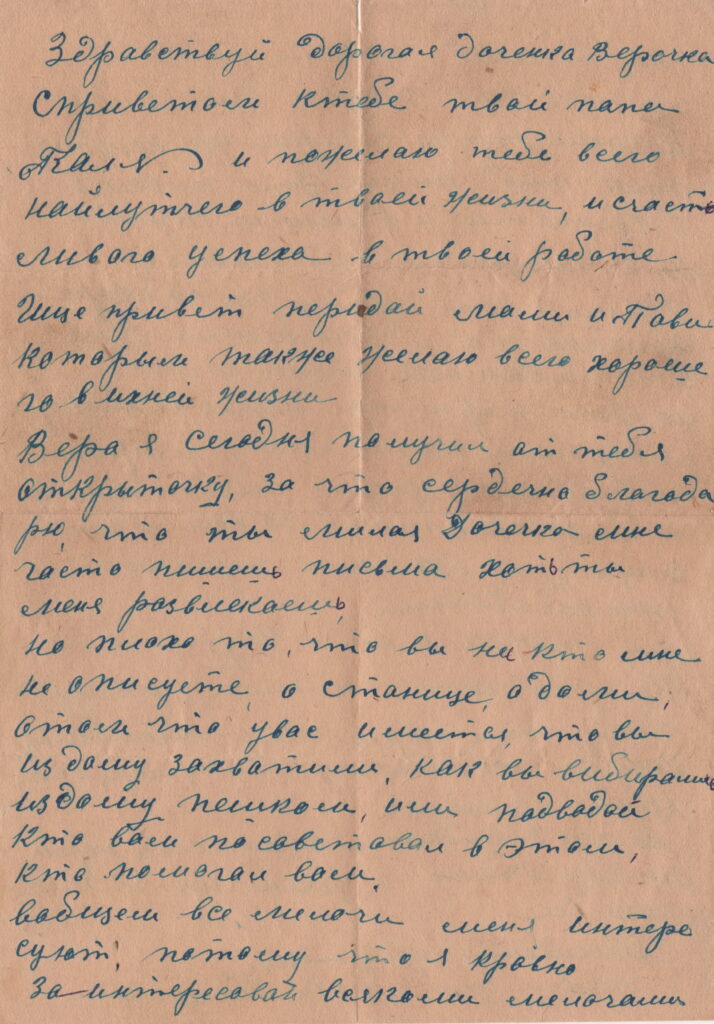 Здравствуй дорогая доченка Верочка
сприветом ктебе твой папа
Каля. и пожелаю тебе всего
найлутчего в твоей жизни, и счаст
ливого успеха в твоей работе
Ище привет передай мами и Пави
которым также желаю всего хороше
го в ихней жизни
Вера я сегодня получил от тебя
открыточку, за что сердечно благода
рю, что ты милая Дочечка мне
часто пишешь письма хоть ты
меня развлекаешь,
но плохо то, что вы не кто мне
не описуете, о станице, о доми,
отом что увас имеется, что вы
из дому захватили, как вы вибирались
из дому пешком, или подводой
кто вам посоветовал в этом,
кто помогал вам,
вобщем все мелочи меня интере
суют, потому что я кровно
заинтересован всякоми мелочами